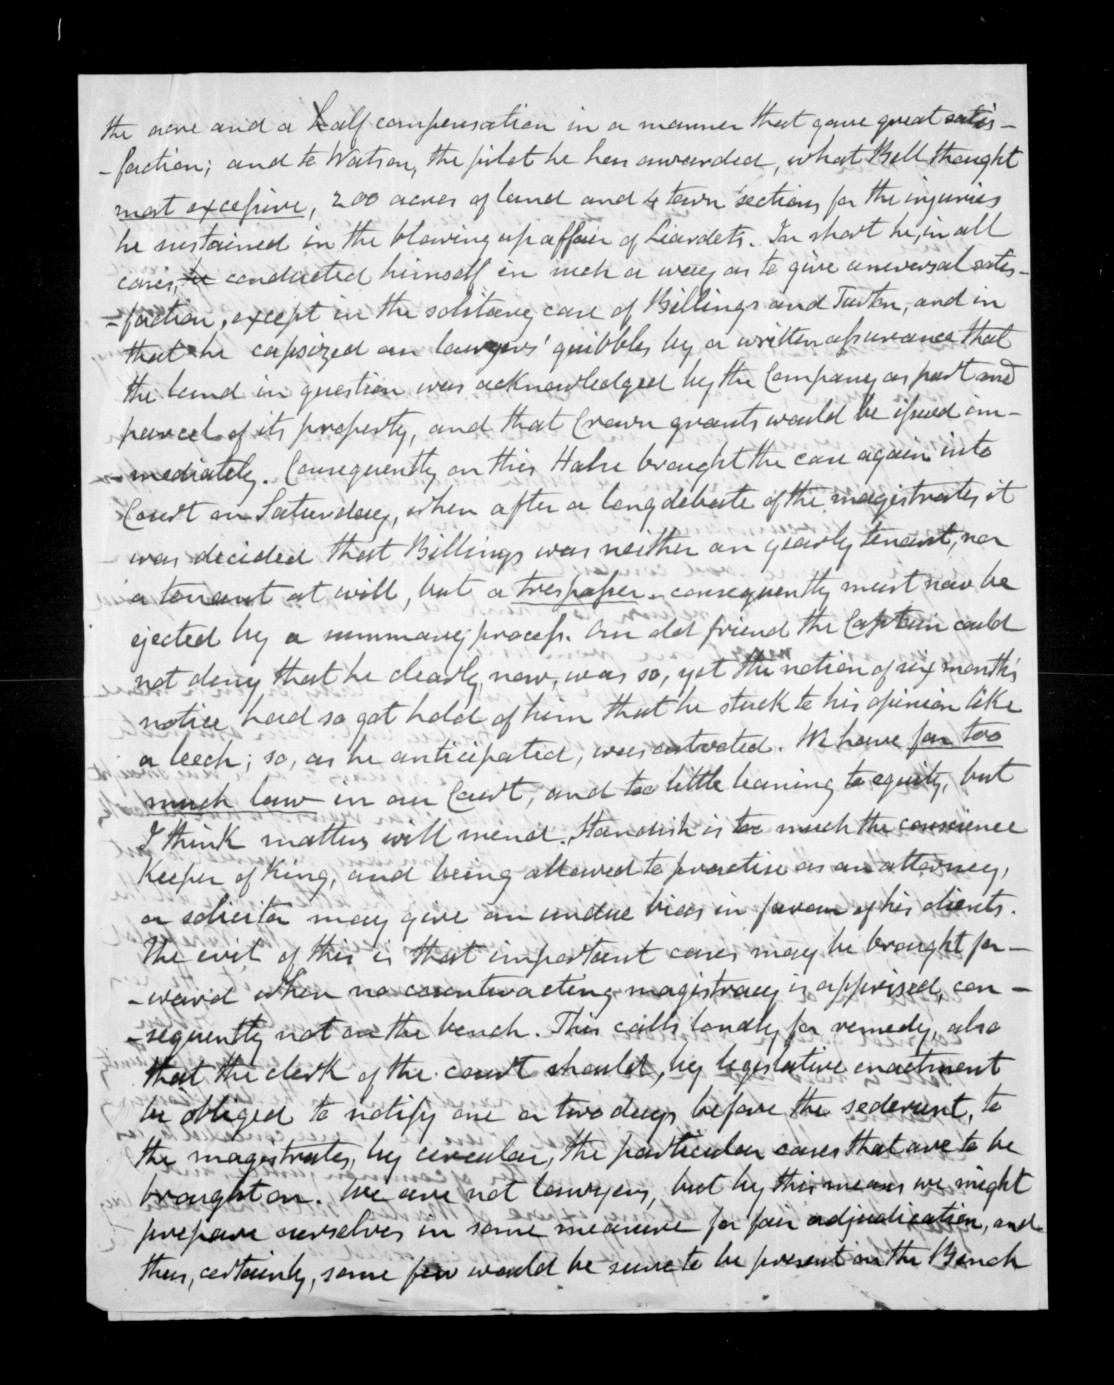 the acre and a half compensation in a manner that gave great satis-
-faction; and to Watson, the pilot he has awarded, what Bell thought
most excessive, 200 acres of land and 4 town sections for the injuries
he sustained in the blowing up affair of Liardets. In short he, in all
cases, he conducted himself in such a way as to give universal satis-
-faction, except in the solitary case of Billings and Turton, and in
that he capsized our lawyers' quibbles by a written assurance that
the land in question was acknowledged by the Company as part and
parcel of its property, and that Crown grants would be issued im-
-mediately. Consequently on this Halse brought the case again into
Court on Saturday, when after a long debate of the magistrates it
was decided that Billings was neither an yearly tenant, nor
a tenant at will, but a trespasser - consequently must now be
ejected by a summary process. Our old friend the Captain could
not deny that he clearly, now, was so, yet the notion of six months'
notice had so got hold of him that he stuck to his opinion like
a leech; so, as he anticipated, was outvoted. We have far too
much law in our Court, and too little leaning to equity, but
I think matters will mend. Standish is too much the conscience
Keeper of King, and being allowed to practise as an attorney,
or solicitor may give an undue bias in favour of his clients.
The evil of this is that important cases may be brought for-
-ward when no counteracting magistracy is apprised, con-
-sequently not on the bench. This calls loudly for remedy, also
that the clerk of the court should, by legislative enactment
be obliged to notify one or two days before the sederunt, to
the magistrates, by circular, the particular cases that are to be
brought on. We are not lawyers, but by this means we might
prepare ourselves in some measure for fair adjudication, and
then, certainly, some few would be sure to be present on the Bench